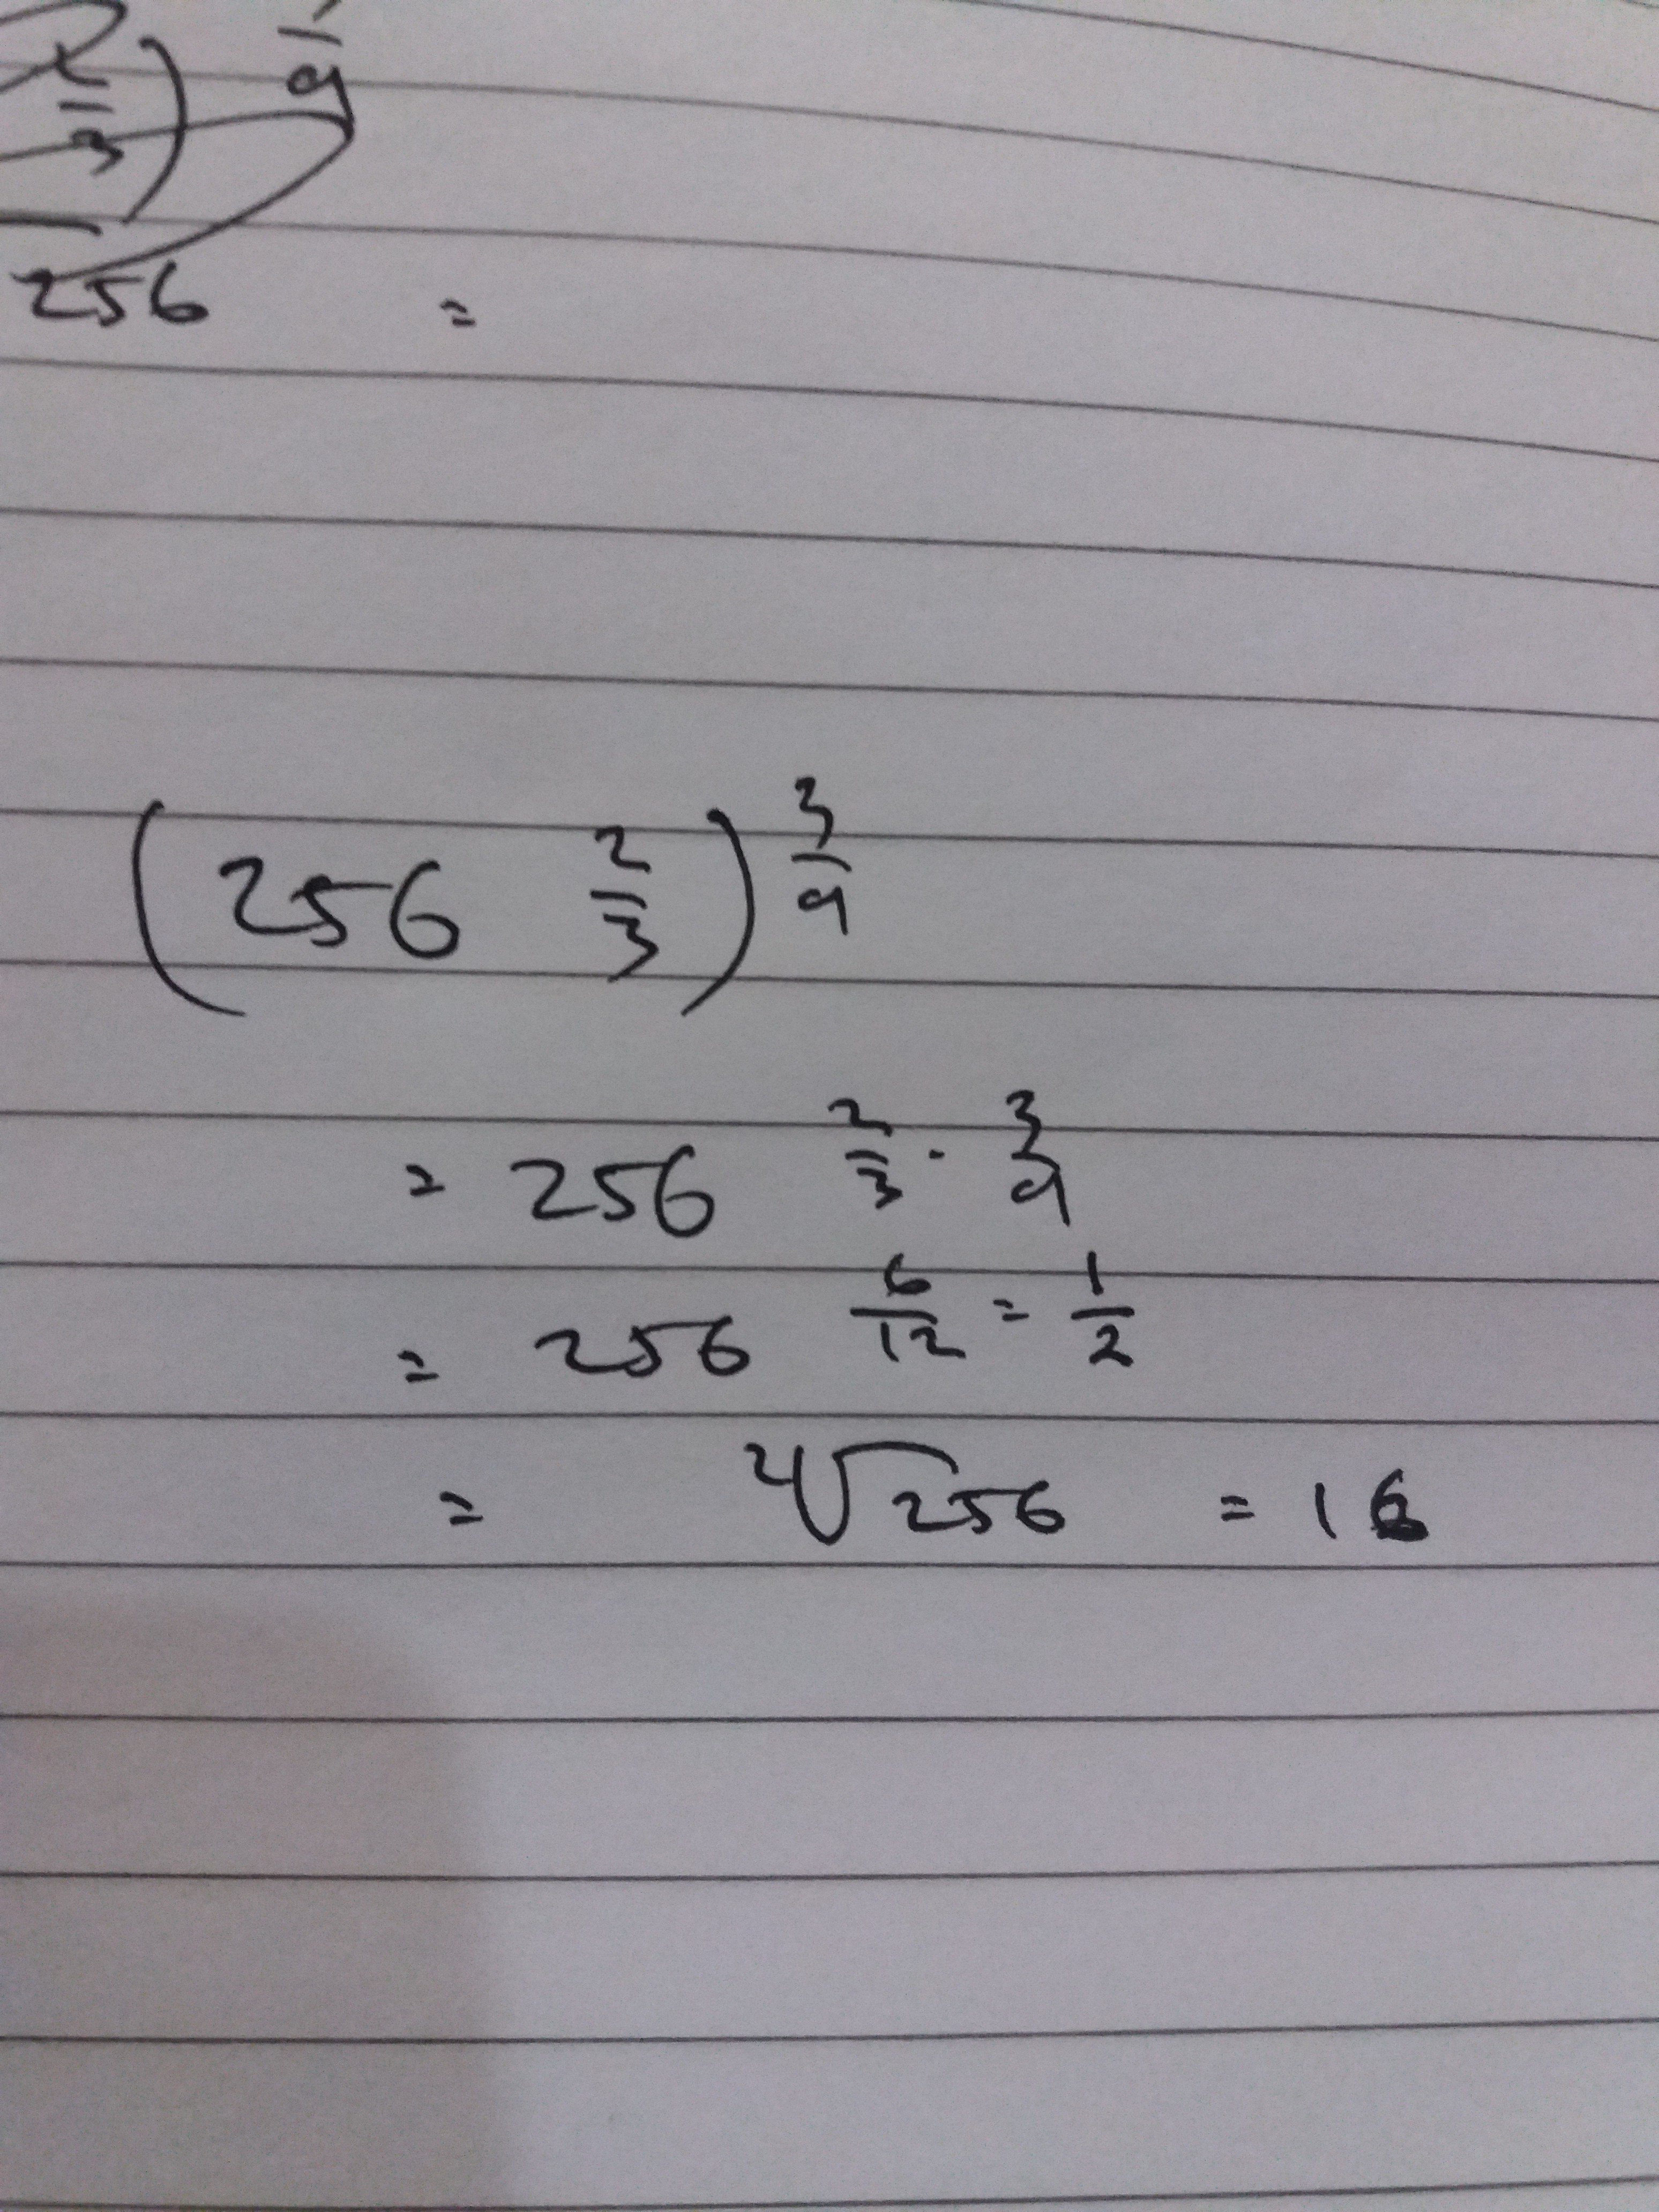 2/3) 1/4
256 =
(256 2/3) 3/4
= 256 2/3 · 3/4
= 256 6/12 = 1/2
= 2√256 = 16